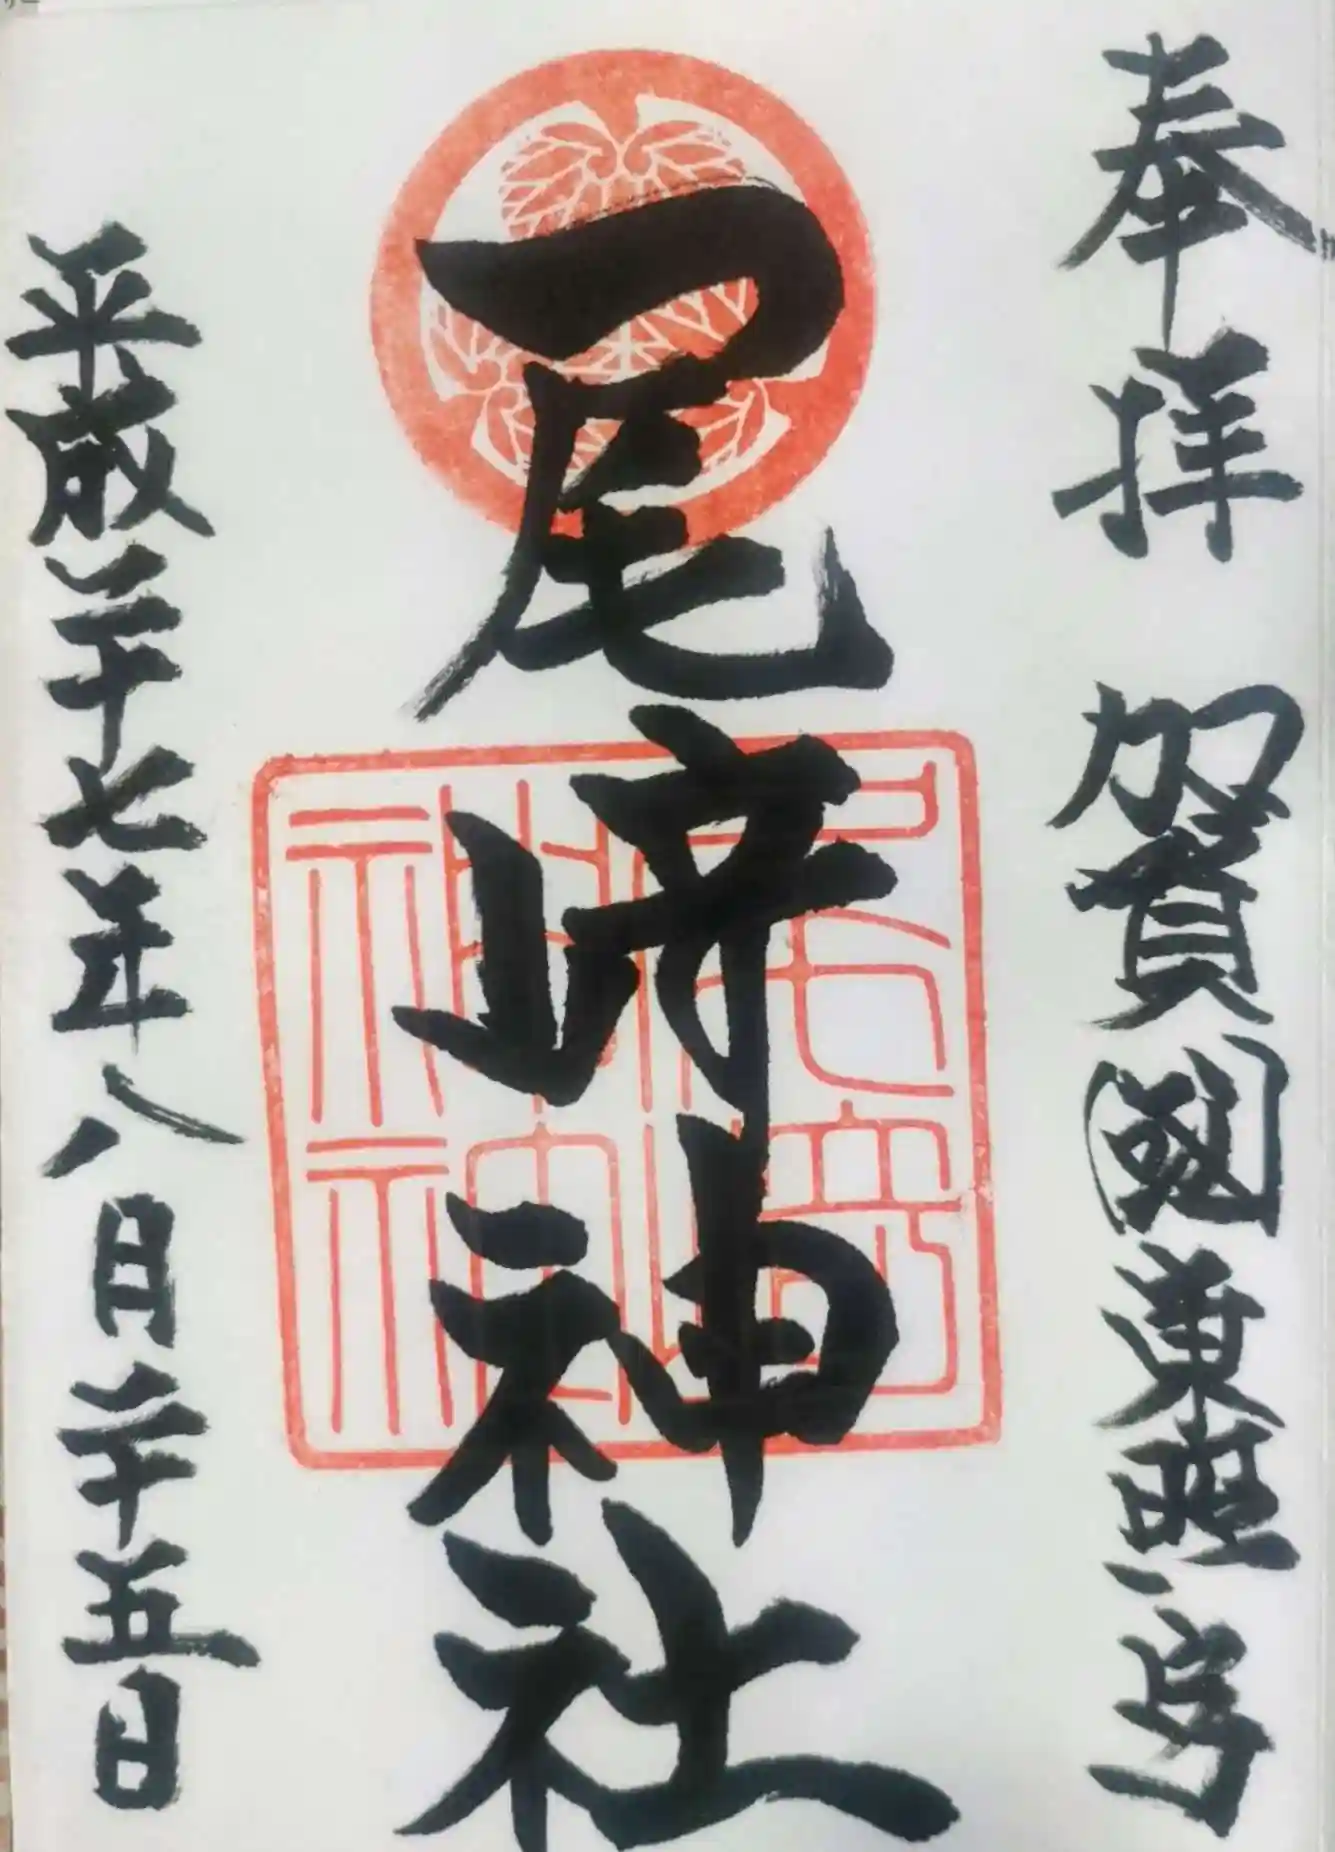 奉拝 加賀國東照宮
尾崎神社
平成二十七年八月二十五日